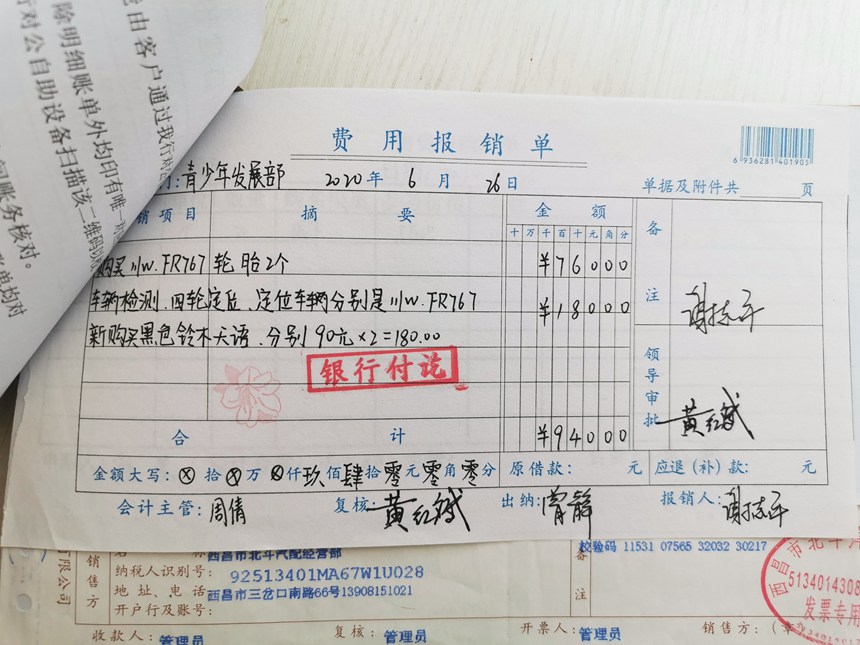 由客户通过我行对
除明细账单外均印有唯一
行对公自助设备扫描该二维码
账务核对。
单均对
费用报销单
6 936281 401905
青少年发展部 2020年 6月 26日 单据及附件共 页
销项目 摘要 金额 备注
十万千百十元角分
购买川W.FR767轮胎2个 ¥76000
车辆检测.四轮定位、定位车辆分别是川W.FR767 ¥18000
新购买黑色铃木天语.分别90元×2=180.00
银行付讫
领导审批
黄红斌
合计 ¥94000
金额大写:ⓧ拾ⓧ万ⓧ仟玖佰肆拾零元零角零分 原借款: 元 应退(补)款: 元
会计主管:周倩 复核:黄红斌 出纳:曾静 报销人:谢志平
谢志平
有限公司
销售方
名 称:西昌市北斗汽配经营部
纳税人识别号:92513401MA67W1U028
地址、电话:西昌市三岔口南路66号13908151021
开户行及账号:
备注
校验码 11531 07565 32032 30217
西昌市北斗汽
5134014308
发票专用
收款人:管理员 复核:管理员 开票人:管理员 销售方:(章